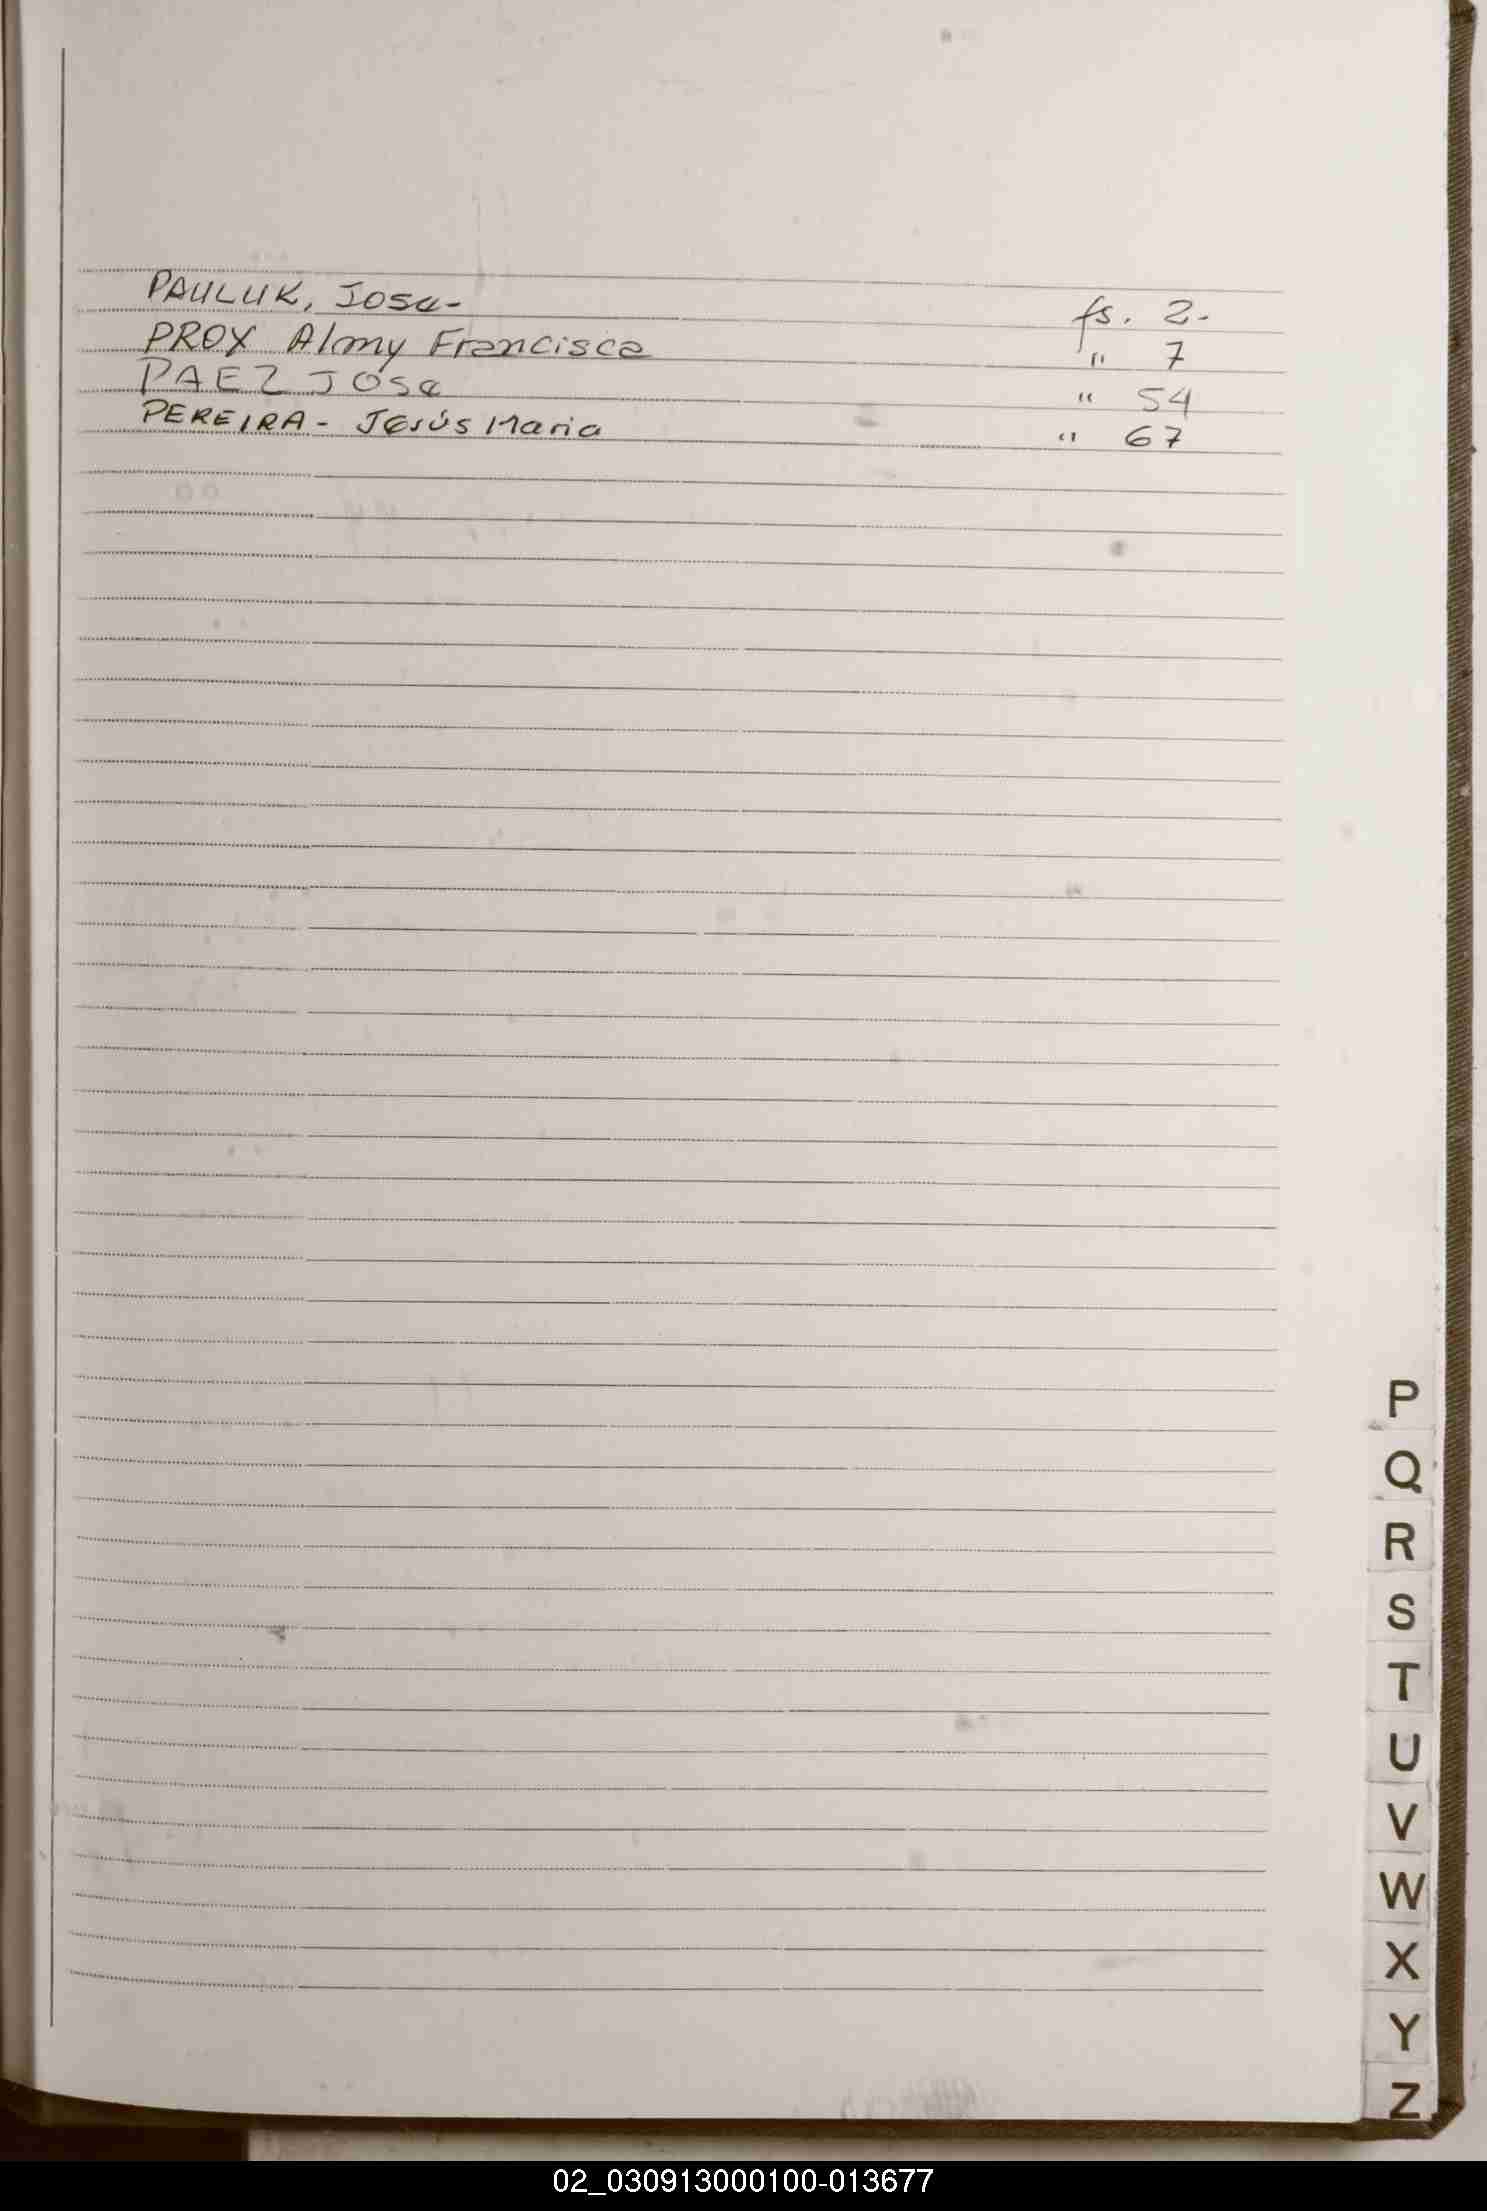 PAULUK, Jose- fs. 2.-
PROX Almy Francisca " 7
PAEZ JOSe " 54
PEREIRA - Jesús Maria " 67
P
Q
R
S
T
U
V
W
X
Y
Z
02_030913000100-013677